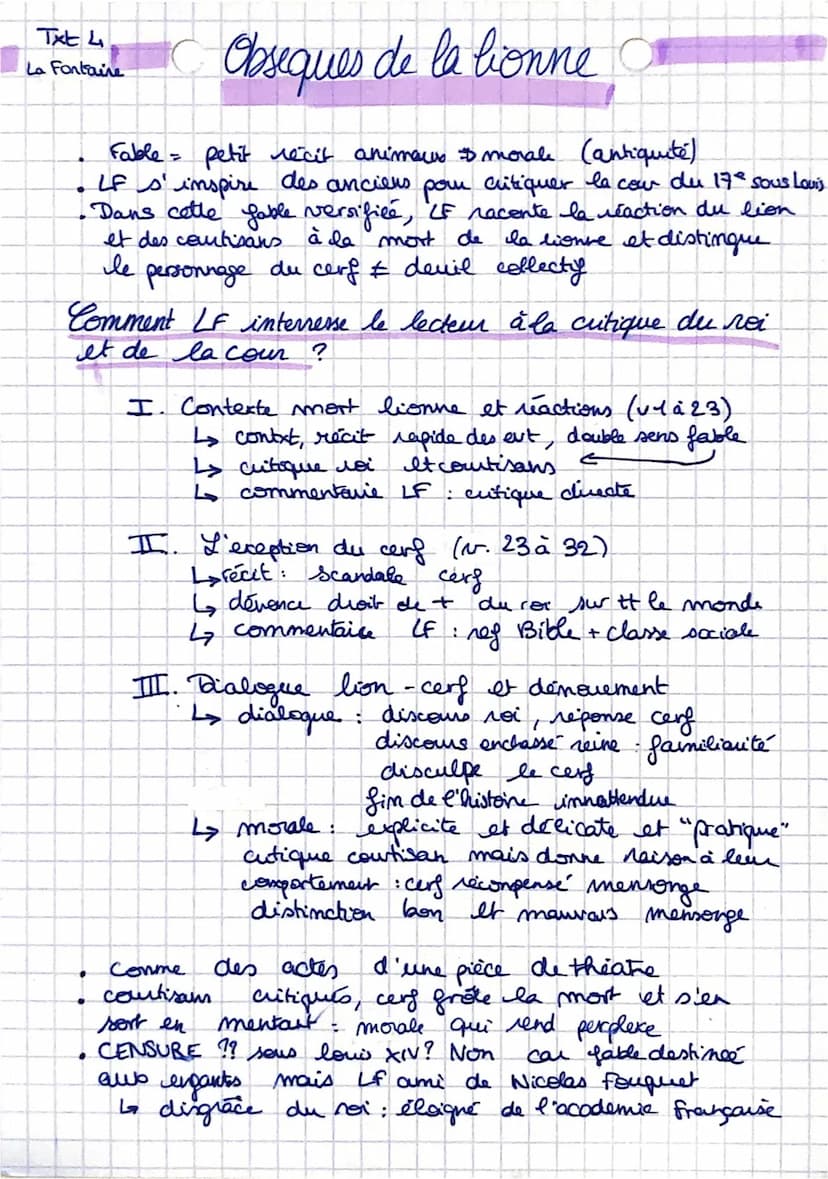 Txt 4
La Fontaine
Obseques de la lionne
• Fable = petit récit animaux ⇒ morale (antiquité)
• LF s'inspire des anciens pour critiquer la cour du 17e sous Louis
• Dans cette fable versifiée, LF raconte la réaction du lion
et des courtisans à la mort de la lionne et distingue
le personnage du cerf ≠ deuil collectif
Comment LF interresse le lecteur à la critique du roi
et de la cour ?
I. Contexte mort lionne et réactions (v1 à 23)
↳ contxt, récit rapide des evt, double sens fable
↳ critique roi et courtisans ←
↳ commentaire LF : critique directe
II. L'exeption du cerf (v. 23 à 32)
↳ récit : scandale cerf
↳ dénonce droit de + du roi sur tt le monde
↳ commentaire LF : ref Bible + classe sociale
III. Dialogue lion - cerf et dénouement
↳ dialogue : discours roi, réponse cerf
discours enchassé reine : familiarité
disculpe le cerf
fin de l'histoire innattendue
↳ morale : explicite et délicate et "pratique"
critique courtisan mais donne raison à leur
comportement : cerf récompensé mensonge
distinction bon et mauvais mensonge
• Comme des actes d'une pièce de théatre
• courtisans critiqués, cerf frôle la mort et s'en
sort en mentant : morale qui rend perplexe
• CENSURE ?? sous louis XIV ? Non car fable destineé
aux enfants mais LF ami de Nicolas Fouquet
↳ disgrâce du roi : éloigné de l'academie française